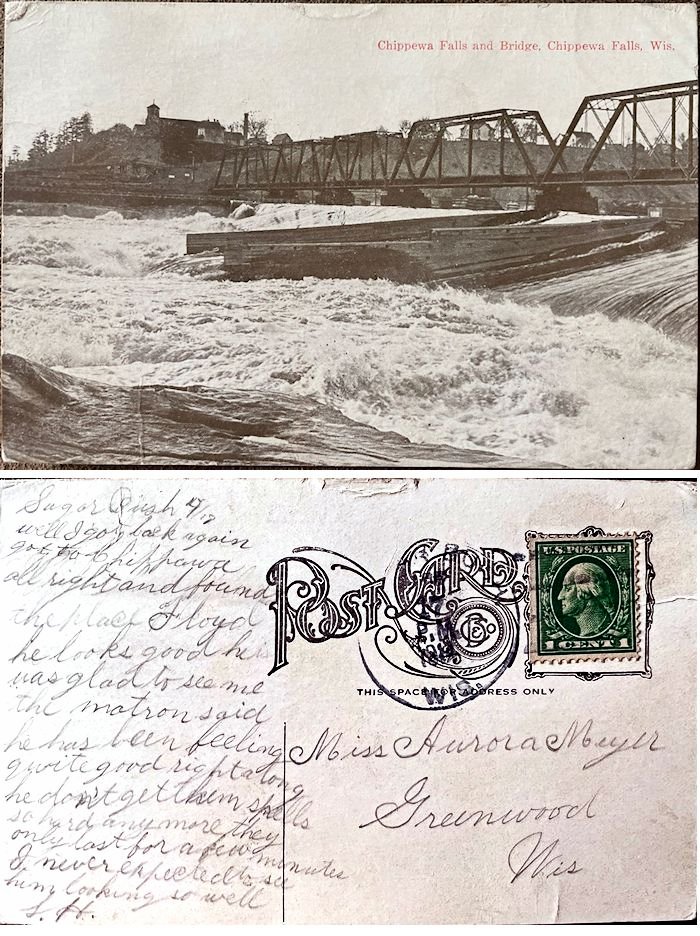 Chippewa Falls and Bridge, Chippewa Falls, Wis.
Sugar Bush 17/
well I got back again
got to Chippawa
all right and found
the place Floyd
he looks good he
was glad to see me
the matron said
he has been feeling
quite good right along
he don't get them spells
so hard any more they
only last for a few minutes
I never expected to see
him looking so well
S. H.
POST CARD
Co
17
P.M.
WIS.
U.S. POSTAGE
1 CENT 1
THIS SPACE FOR ADDRESS ONLY
Miss Aurora Meyer
Greenwood
Wis